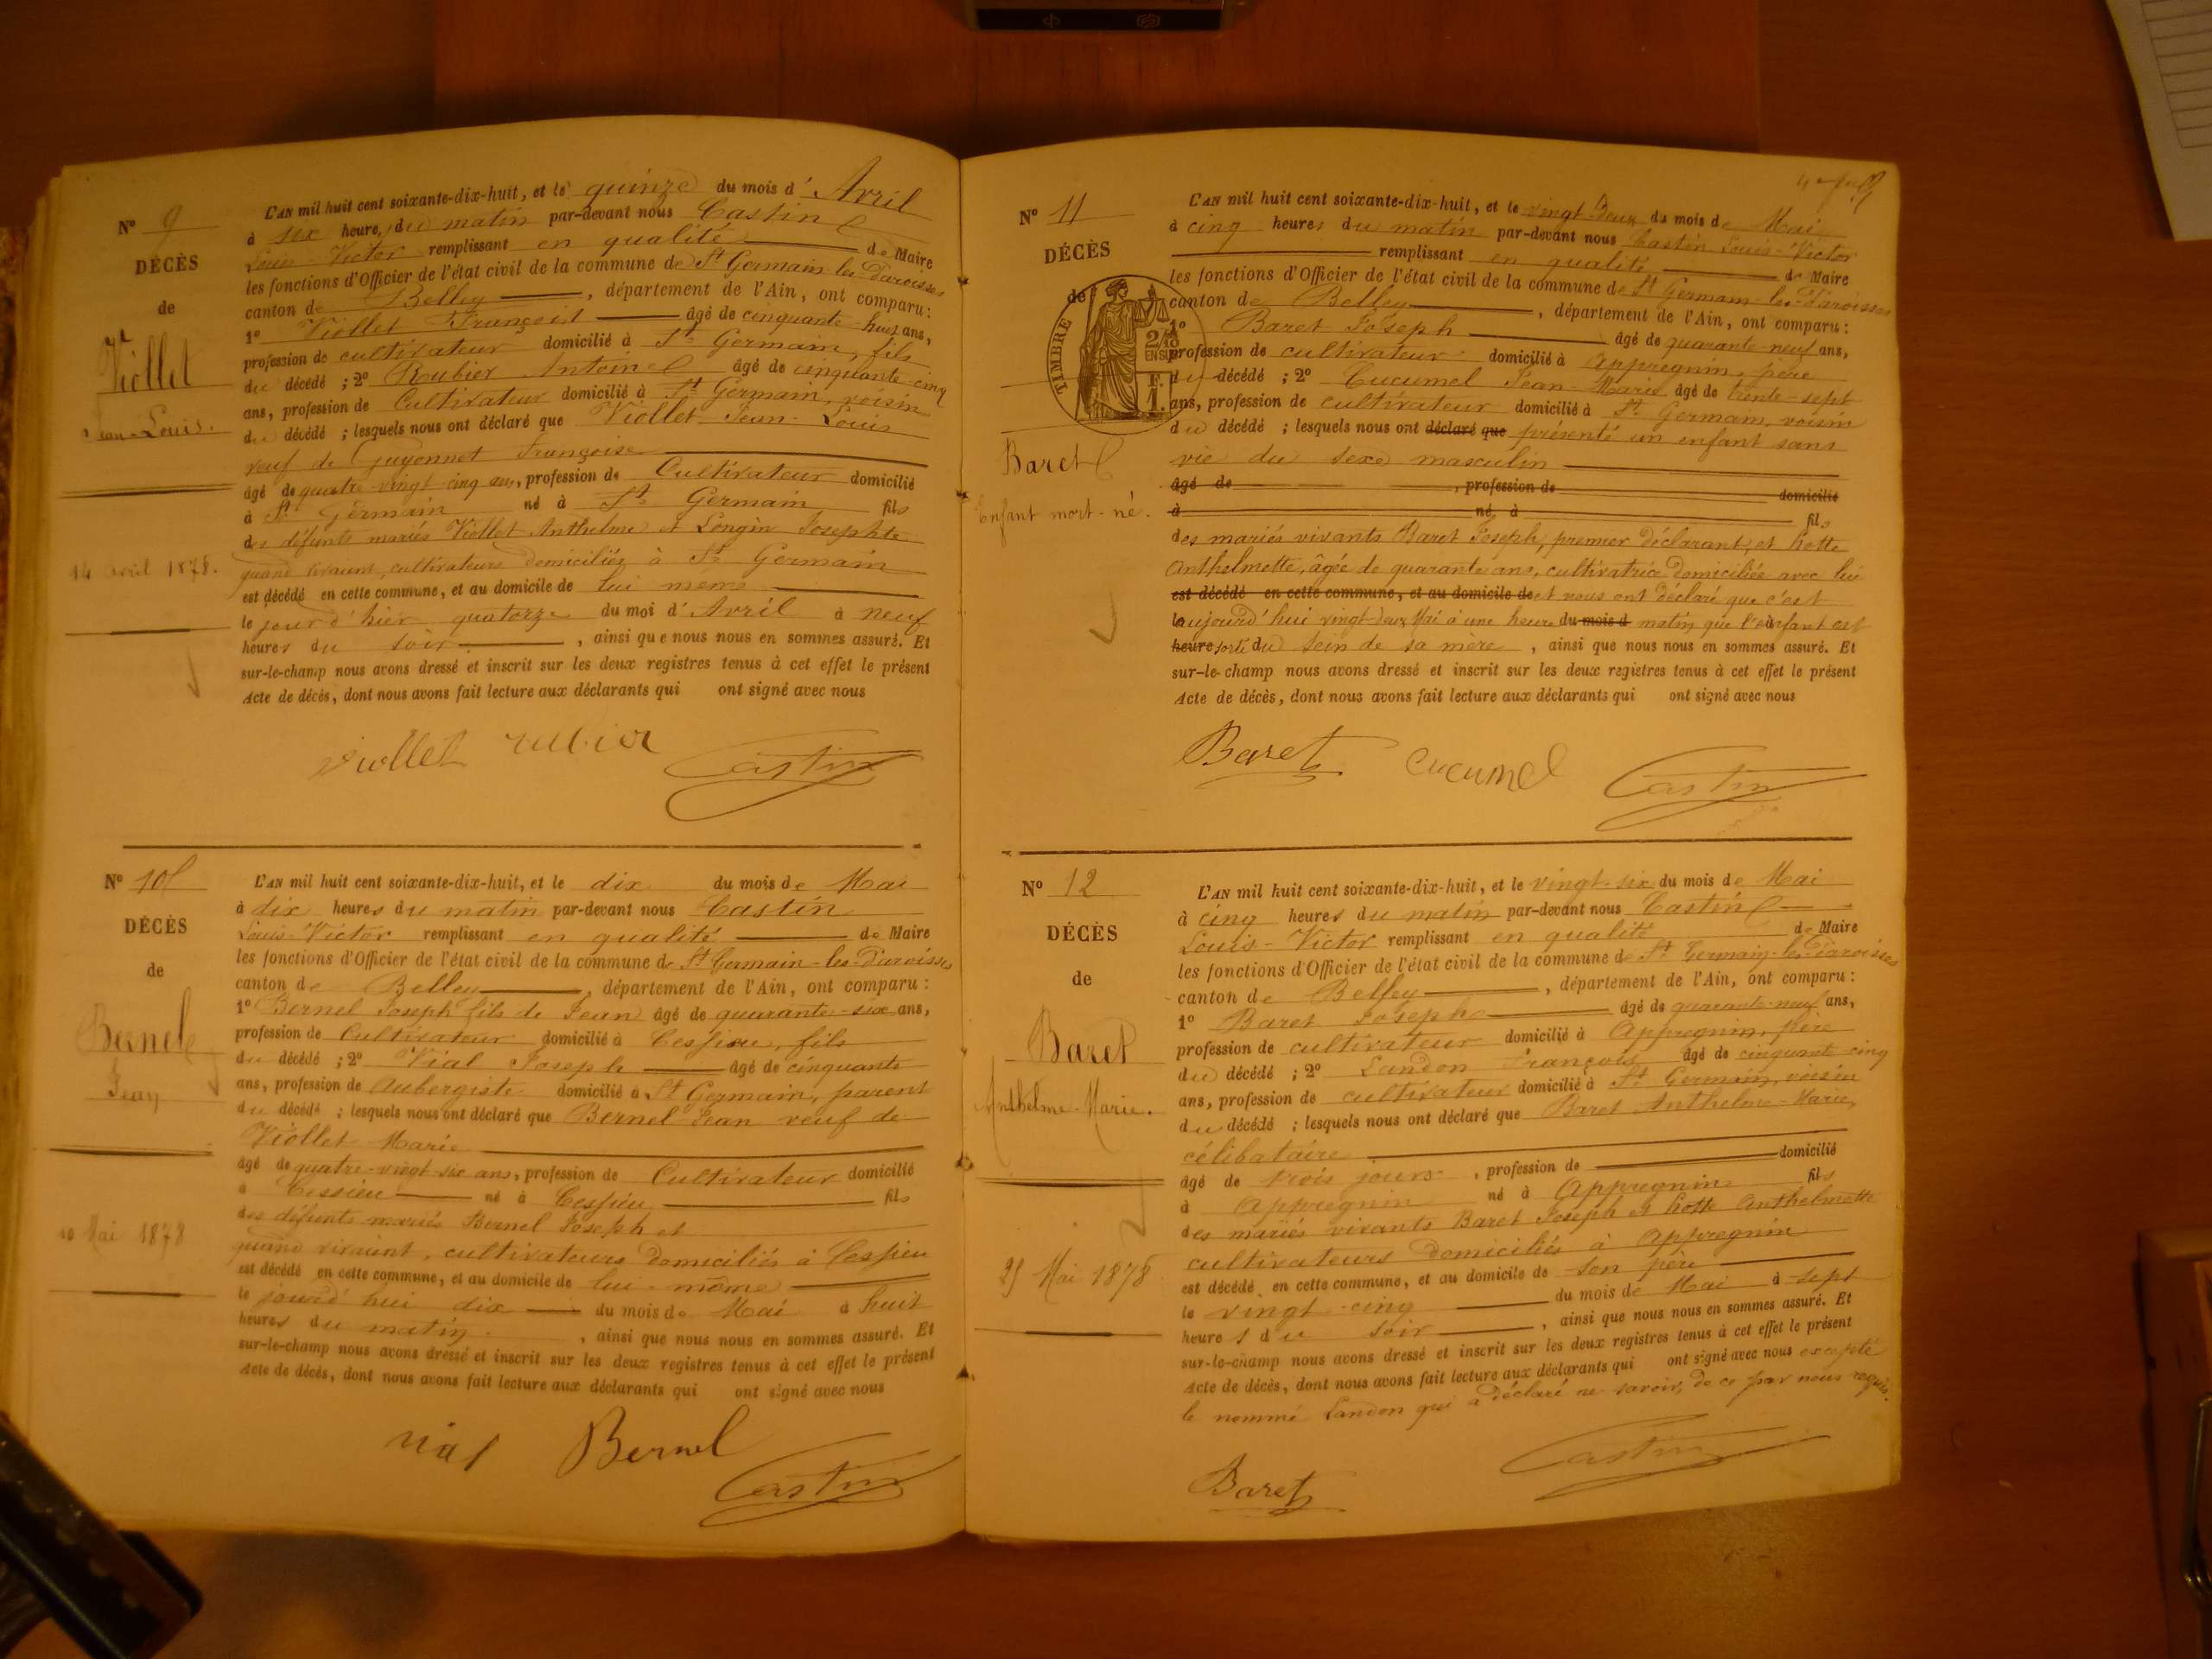 Nº 9
DÉCÈS
de
Viollet
Jean-Louis.
14 avril 1878.
L'AN mil huit cent soixante-dix-huit, et le quinze du mois d'Avril
à six heures du matin par-devant nous Castin
Louis-Victor remplissant en qualité de Maire
les fonctions d'Officier de l'état civil de la commune de St Germain-les-Paroisses
canton de Belley, département de l'Ain, ont comparu :
1º Viollet François âgé de cinquante-huit ans,
profession de cultivateur domicilié à St Germain, fils
du décédé ; 2º Roubier Antoine âgé de cinquante-cinq
ans, profession de Cultivateur domicilié à St Germain, voisin
du décédé ; lesquels nous ont déclaré que Viollet Jean-Louis
veuf de Guyonnet Françoise
âgé de quatre-vingt-cinq ans, profession de Cultivateur domicilié
à St Germain né à St Germain fils
des défunts mariés Viollet Anthelme et Longin Josephte
quand vivaient, cultivateurs domiciliés à St Germain
est décédé en cette commune, et au domicile de lui meme
le jourd'hier quatorze du moi d'Avril à neuf
heures du soir, ainsi que nous nous en sommes assuré. Et
sur-le-champ nous avons dressé et inscrit sur les deux registres tenus à cet effet le présent
Acte de décès, dont nous avons fait lecture aux déclarants qui ont signé avec nous
Viollet rubier Castin
Nº 10
DÉCÈS
de
Bernel
Jean
10 Mai 1878
L'AN mil huit cent soixante-dix-huit, et le dix du mois de Mai
à dix heures du matin par-devant nous Castin
Louis-Victor remplissant en qualité de Maire
les fonctions d'Officier de l'état civil de la commune de St Germain-les-Paroisses
canton de Belley, département de l'Ain, ont comparu :
1º Bernel Joseph fils de Jean âgé de quarante-six ans,
profession de Cultivateur domicilié à Cessieu, fils
du décédé ; 2º Vial Joseph âgé de cinquante
ans, profession de Aubergiste domicilié à St Germain, parent
du décédé ; lesquels nous ont déclaré que Bernel Jean veuf de
Viollet Marie
âgé de quatre-vingt-six ans, profession de Cultivateur domicilié
à Cessieu né à Cessieu fils
des défunts mariés Bernel Joseph et
quand vivaient, cultivateurs domiciliés à Cessieu
est décédé en cette commune, et au domicile de lui-même
le jourd'hui dix du mois de Mai à huit
heures du matin, ainsi que nous nous en sommes assuré. Et
sur-le-champ nous avons dressé et inscrit sur les deux registres tenus à cet effet le présent
Acte de décès, dont nous avons fait lecture aux déclarants qui ont signé avec nous
vial Bernel Castin
Nº 11
DÉCÈS
de
TIMBRE
2/10
EN SUS
1 F.
Baret
Enfant mort-né.
L'AN mil huit cent soixante-dix-huit, et le vingt-deux du mois de Mai
à cinq heures du matin par-devant nous Castin Louis-Victor
remplissant en qualité de Maire
les fonctions d'Officier de l'état civil de la commune de St Germain-les-Paroisses
canton de Belley, département de l'Ain, ont comparu :
1º Baret Joseph âgé de quarante-neuf ans,
profession de cultivateur domicilié à Appregnin, père
du décédé ; 2º Cucumel Jean-Marie âgé de trente-sept
ans, profession de cultivateur domicilié à St Germain, voisin
du décédé ; lesquels nous ont déclaré que présenté un enfant sans
vie du sexe masculin
âgé de , profession de domicilié
à né à fils
des mariés vivants Baret Joseph, premier déclarant, et hotte
Anthelmette, âgée de quarante ans, cultivatrice domiciliée avec lui
est décédé en cette commune, et au domicile de et nous ont déclaré que c'est
aujourd'hui vingt-deux Mai à une heure du mois d matin que l'enfant est
heure sorti du sein de sa mère, ainsi que nous nous en sommes assuré. Et
sur-le-champ nous avons dressé et inscrit sur les deux registres tenus à cet effet le présent
Acte de décès, dont nous avons fait lecture aux déclarants qui ont signé avec nous
Baret Cucumel Castin
Nº 12
DÉCÈS
de
Baret
Anthelme-Marie.
25 Mai 1878
L'AN mil huit cent soixante-dix-huit, et le vingt-six du mois de Mai
à cinq heures du matin par-devant nous Castin
Louis-Victor remplissant en qualité de Maire
les fonctions d'Officier de l'état civil de la commune de St Germain-les-Paroisses
canton de Belley, département de l'Ain, ont comparu :
1º Baret Joseph âgé de quarante-neuf ans,
profession de cultivateur domicilié à Appregnin, père
du décédé ; 2º Landon François âgé de cinquante-cinq
ans, profession de cultivateur domicilié à St Germain, voisin
du décédé ; lesquels nous ont déclaré que Baret Anthelme-Marie,
célibataire
âgé de trois jours, profession de domicilié
à Appregnin né à Appregnin fils
des mariés vivants Baret Joseph et hotte Anthelmette
cultivateurs domiciliés à Appregnin
est décédé en cette commune, et au domicile de son père
le vingt-cinq du mois de Mai à sept
heures du soir, ainsi que nous nous en sommes assuré. Et
sur-le-champ nous avons dressé et inscrit sur les deux registres tenus à cet effet le présent
Acte de décès, dont nous avons fait lecture aux déclarants qui ont signé avec nous excepté
le nommé Landon qui a déclaré ne savoir, de ce par nous requis.
Baret Castin